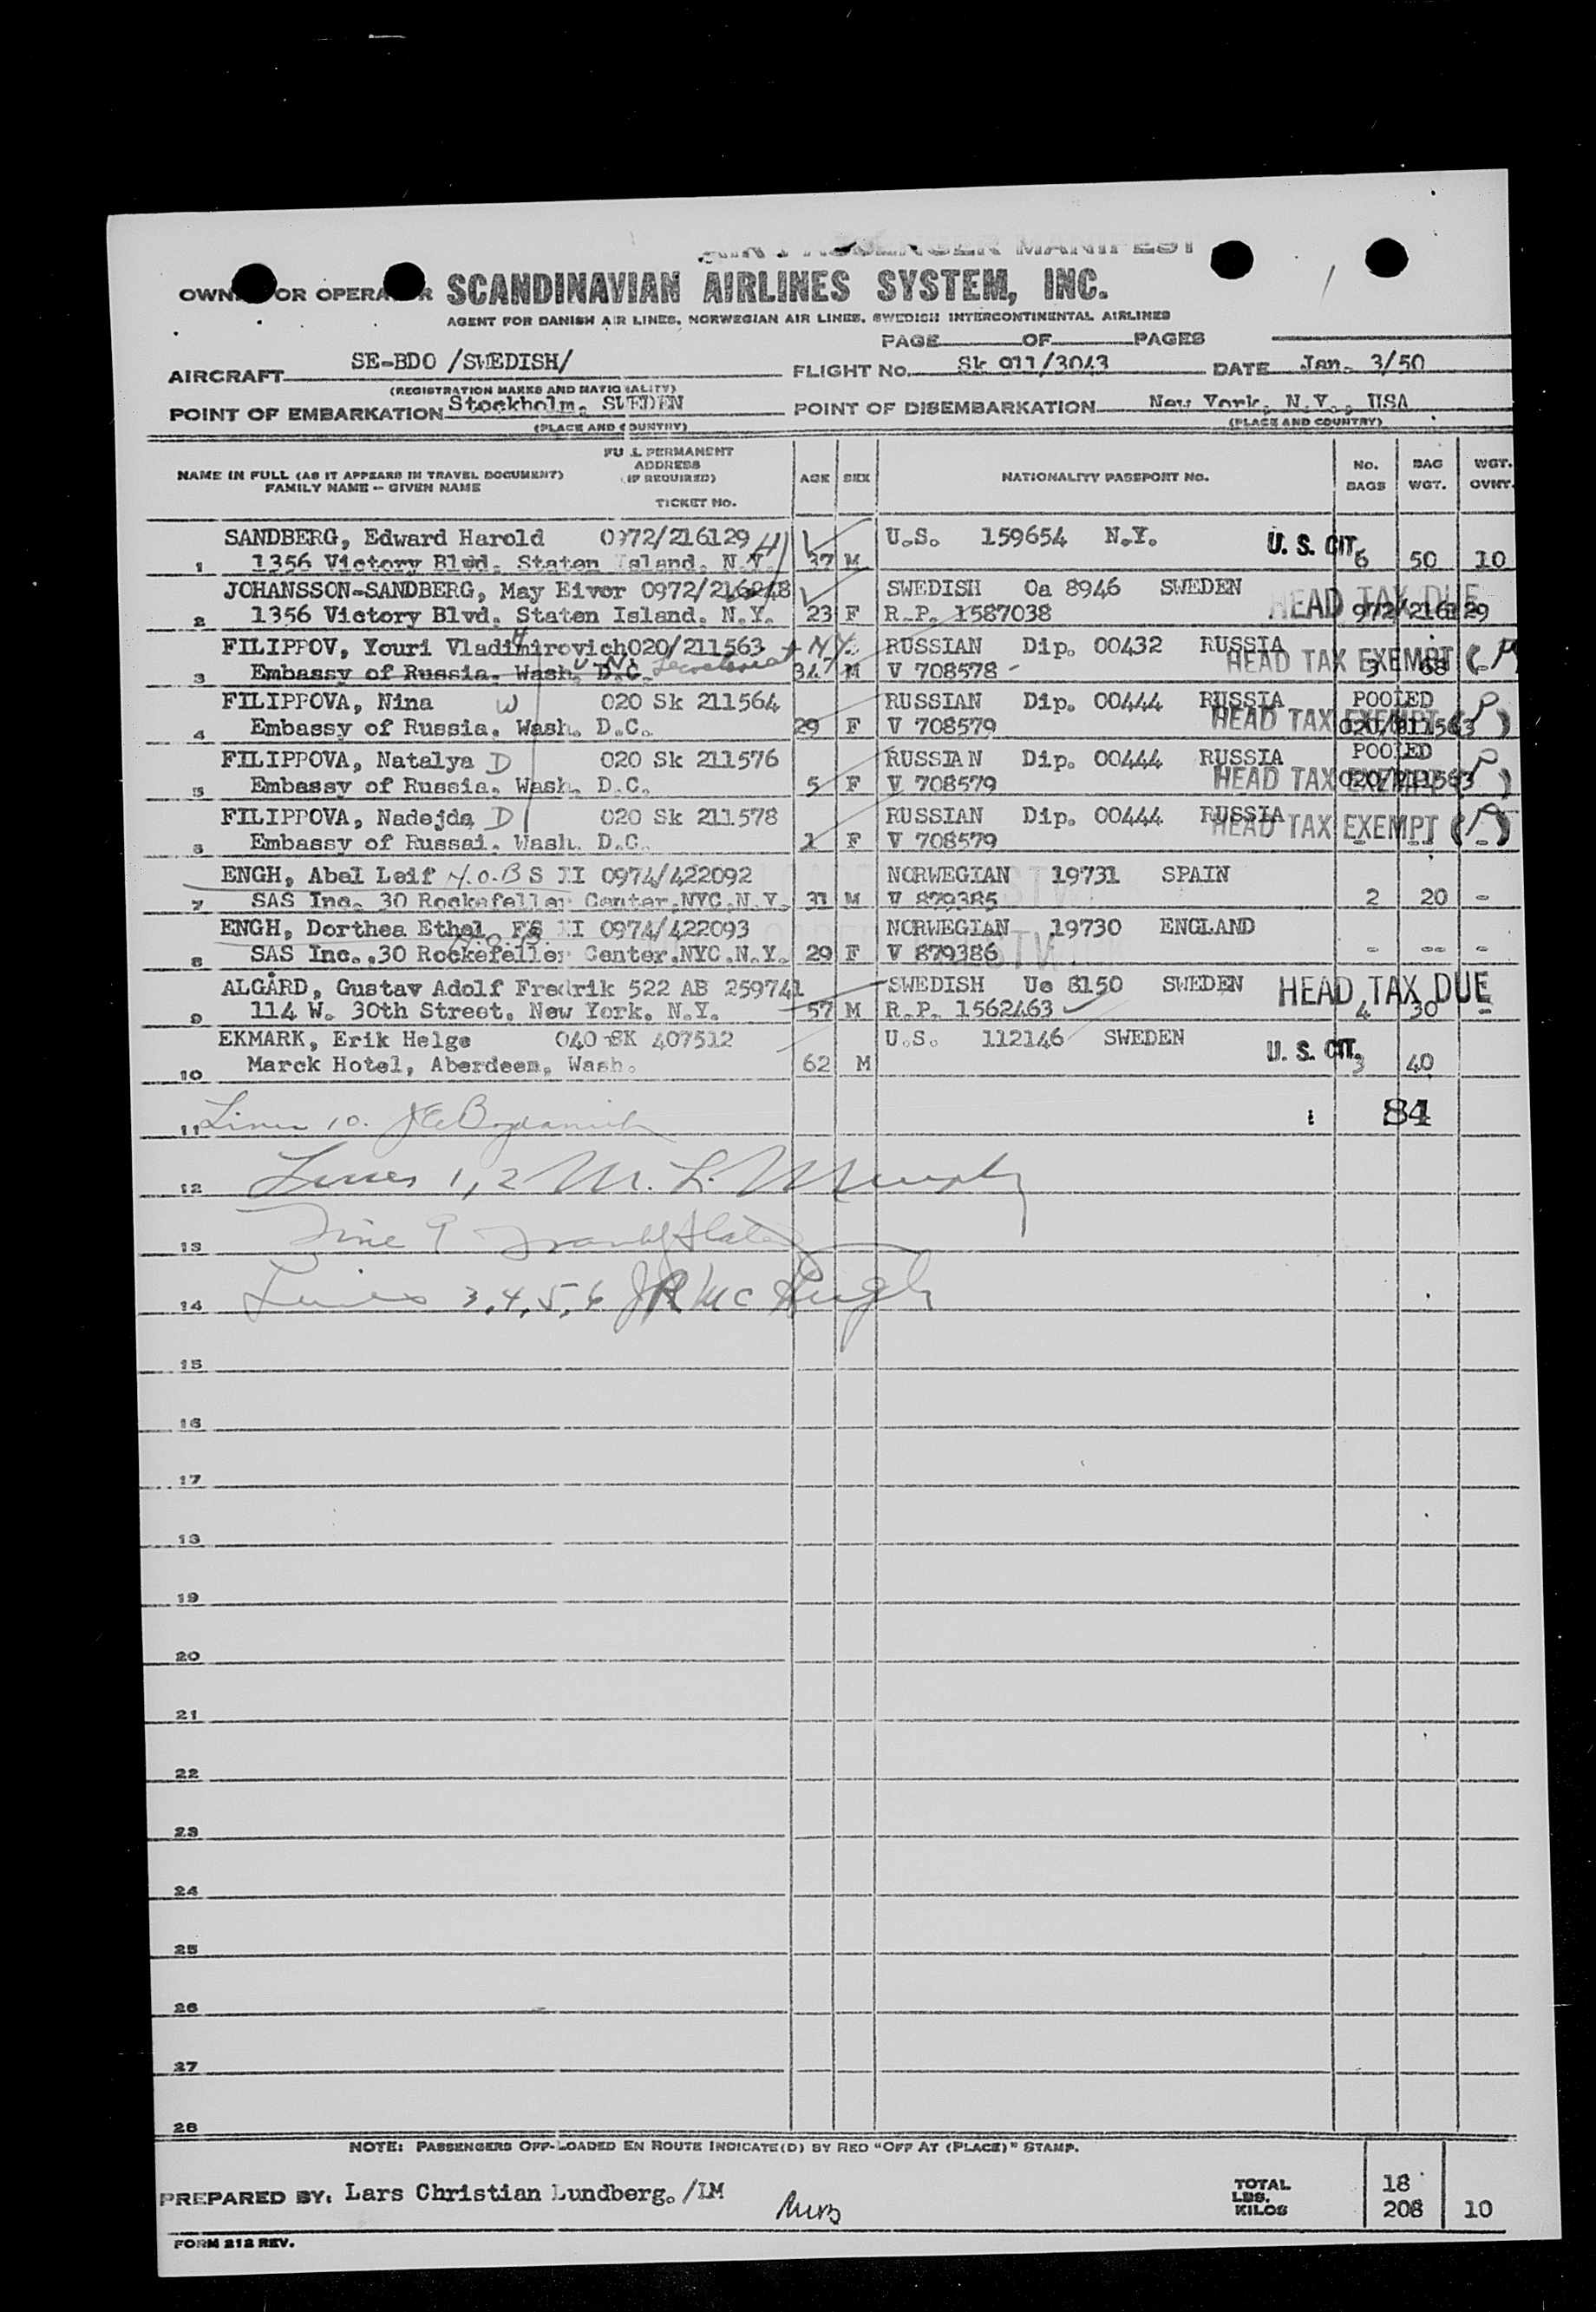 AIR PASSENGER MANIFEST
OWNER OR OPERATOR SCANDINAVIAN AIRLINES SYSTEM, INC.
AGENT FOR DANISH AIR LINES, NORWEGIAN AIR LINES, SWEDISH INTERCONTINENTAL AIRLINES
PAGE OF PAGES
AIRCRAFT SE-BDO /SWEDISH/ FLIGHT No. Sk 911/3043 DATE Jan. 3/50
(REGISTRATION MARKS AND NATIONALITY)
POINT OF EMBARKATION Stockholm, SWEDEN POINT OF DISEMBARKATION New York, N.Y., USA
(PLACE AND COUNTRY) (PLACE AND COUNTRY)
NAME IN FULL (AS IT APPEARS IN TRAVEL DOCUMENT) FAMILY NAME -- GIVEN NAME FULL PERMANENT ADDRESS (IF REQUIRED) TICKET No. AGE SEX NATIONALITY PASSPORT No. No. BAGS BAG WGT. WGT. OVHT.
SANDBERG, Edward Harold 0972/216129 U.S. 159654 N.Y. U. S. CIT.
1 1356 Victory Blvd. Staten Island. N.Y. 37 M 6 50 10
JOHANSSON-SANDBERG, May Eivor 0972/216248 SWEDISH Oa 8946 SWEDEN HEAD TAX DUE
2 1356 Victory Blvd. Staten Island. N.Y. 23 F R.P. 1587038 972/216129
FILIPPOV, Youri Vladimirovich 020/211563 N.Y. RUSSIAN Dip. 00432 RUSSIA HEAD TAX EXEMPT (P)
3 Embassy of Russia. Wash. D.C. U.N. Secretariat 34 M V 708578 3 68 -
FILIPPOVA, Nina W 020 Sk 211564 RUSSIAN Dip. 00444 RUSSIA POOLED
4 Embassy of Russia. Wash. D.C. 29 F V 708579 HEAD TAX EXEMPT (P) 020/211563
FILIPPOVA, Natalya D 020 Sk 211576 RUSSIAN Dip. 00444 RUSSIA POOLED
5 Embassy of Russia. Wash. D.C. 5 F V 708579 HEAD TAX EXEMPT (P) 020/211563
FILIPPOVA, Nadejda D 020 Sk 211578 RUSSIAN Dip. 00444 RUSSIA HEAD TAX EXEMPT (P)
6 Embassy of Russai. Wash. D.C. 1 F V 708579 - - -
ENGH, Abel Leif N.O.B S II 0974/422092 NORWEGIAN 19731 SPAIN
7 SAS Inc. 30 Rockefeller Center.NYC.N.Y. 31 M V 879385 2 20 -
ENGH, Dorthea Ethel FS II 0974/422093 NORWEGIAN 19730 ENGLAND
8 N.O.B. SAS Inc..30 Rockefeller Center.NYC.N.Y. 29 F V 879386 - -- -
ALGÅRD, Gustav Adolf Fredrik 522 AB 259741 SWEDISH Ue 8150 SWEDEN HEAD TAX DUE
9 114 W. 30th Street. New York. N.Y. 57 M R.P. 1562463 4 30 -
EKMARK, Erik Helge 040-SK 407512 U.S. 112146 SWEDEN U. S. CIT.
10 Marck Hotel, Aberdeem, Wash. 62 M 3 40
11 Line 10. 84
12 Lines 1, 2 M. L. Murphy
13 Line 9
14 Lines 3, 4, 5, 6 JR McHugh
15
16
17
18
19
20
21
22
23
24
25
26
27
28
NOTE: PASSENGERS OFF-LOADED EN ROUTE INDICATE(D) BY RED "OFF AT (PLACE)" STAMP.
PREPARED BY: Lars Christian Lundberg./IM TOTAL LBS. KILOS 18 208 10
FORM 212 REV.